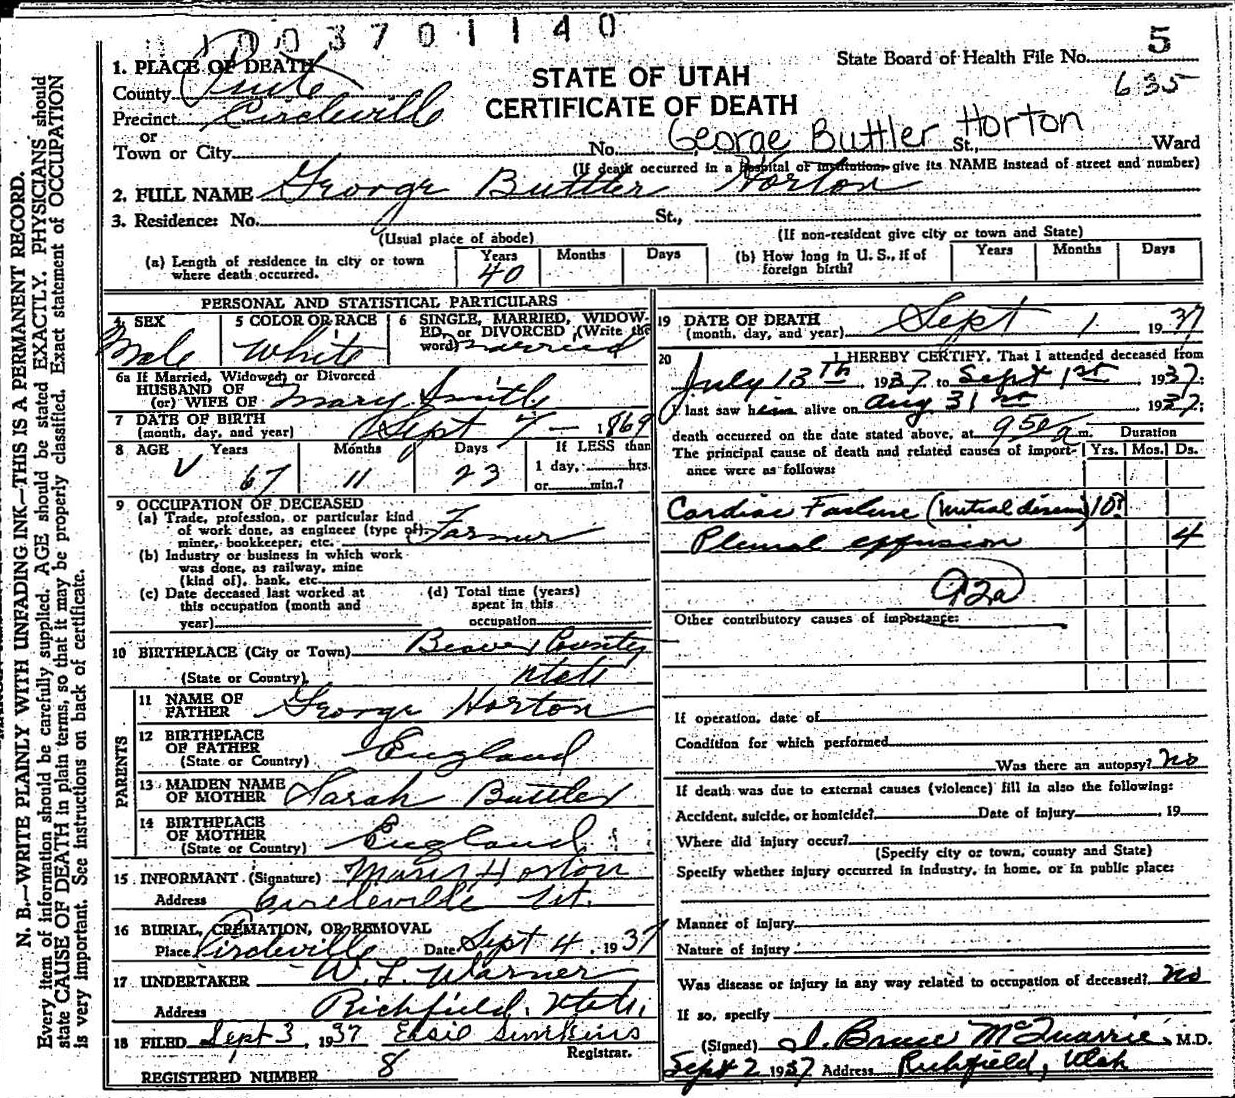 1003701140
State Board of Health File No. 5
635
STATE OF UTAH
CERTIFICATE OF DEATH
1. PLACE OF DEATH
County Piute
Precinct Circleville
or
Town or City No. George Buttler Horton St., Ward
(If death occurred in a hospital or institution, give its NAME instead of street and number)
2. FULL NAME George Buttler Horton
3. Residence: No. St.,
(Usual place of abode) (If non-resident give city or town and State)
(a) Length of residence in city or town where death occurred. Years 40 Months Days
(b) How long in U. S., if of foreign birth? Years Months Days
PERSONAL AND STATISTICAL PARTICULARS
4 SEX Male
5 COLOR OR RACE White
6 SINGLE, MARRIED, WIDOWED, or DIVORCED (Write the word) married
6a If Married, Widowed, or Divorced
HUSBAND OF
(or) WIFE OF Mary Smith
7 DATE OF BIRTH
(month, day, and year) Sept 7 — 1869
8 AGE Years 67 Months 11 Days 23
If LESS than
1 day, hrs.
or min.?
9 OCCUPATION OF DECEASED
(a) Trade, profession, or particular kind
of work done, as engineer (type of),
miner, bookkeeper, etc. Farmer
(b) Industry or business in which work
was done, as railway, mine
(kind of), bank, etc.
(c) Date deceased last worked at
this occupation (month and
year)
(d) Total time (years)
spent in this
occupation
10 BIRTHPLACE (City or Town) Beaver County
(State or Country) Utah
PARENTS
11 NAME OF
FATHER George Horton
12 BIRTHPLACE
OF FATHER
(State or Country) England
13 MAIDEN NAME
OF MOTHER Sarah Buttler
14 BIRTHPLACE
OF MOTHER
(State or Country) England
15 INFORMANT (Signature) Horton
Address Circleville Ut.
16 BURIAL, CREMATION, OR REMOVAL
Place Circleville Date Sept 4, 1937
17 UNDERTAKER W. L. Warner
Address Richfield, Utah.
18 FILED Sept 3, 1937 Elsie Simkins
Registrar.
REGISTERED NUMBER 8
19 DATE OF DEATH
(month, day, and year) Sept 1 1937
20 I HEREBY CERTIFY, That I attended deceased from
July 13th, 1937 to Sept 1st 1937;
I last saw him alive on Aug 31st, 1937;
death occurred on the date stated above, at 9 50 a m.
Duration
The principal cause of death and related causes of importance were as follows: Yrs. Mos. Ds.
Cardiac Failure (mitral disease) 10?
Pleural effusion 4
92a
Other contributory causes of importance:
If operation, date of
Condition for which performed
Was there an autopsy? no
If death was due to external causes (violence) fill in also the following:
Accident, suicide, or homicide? Date of injury , 19
Where did injury occur?
(Specify city or town, county and State)
Specify whether injury occurred in industry, in home, or in public place:
Manner of injury
Nature of injury
Was disease or injury in any way related to occupation of deceased? no
If so, specify
(Signed) J. Bruce McQuarrie, M.D.
Sept 2 1937 Address Richfield, Utah
N. B.—WRITE PLAINLY WITH UNFADING INK—THIS IS A PERMANENT RECORD.
Every item of information should be carefully supplied. AGE should be stated EXACTLY. PHYSICIANS should
state CAUSE OF DEATH in plain terms, so that it may be properly classified. Exact statement of OCCUPATION
is very important. See instructions on back of certificate.